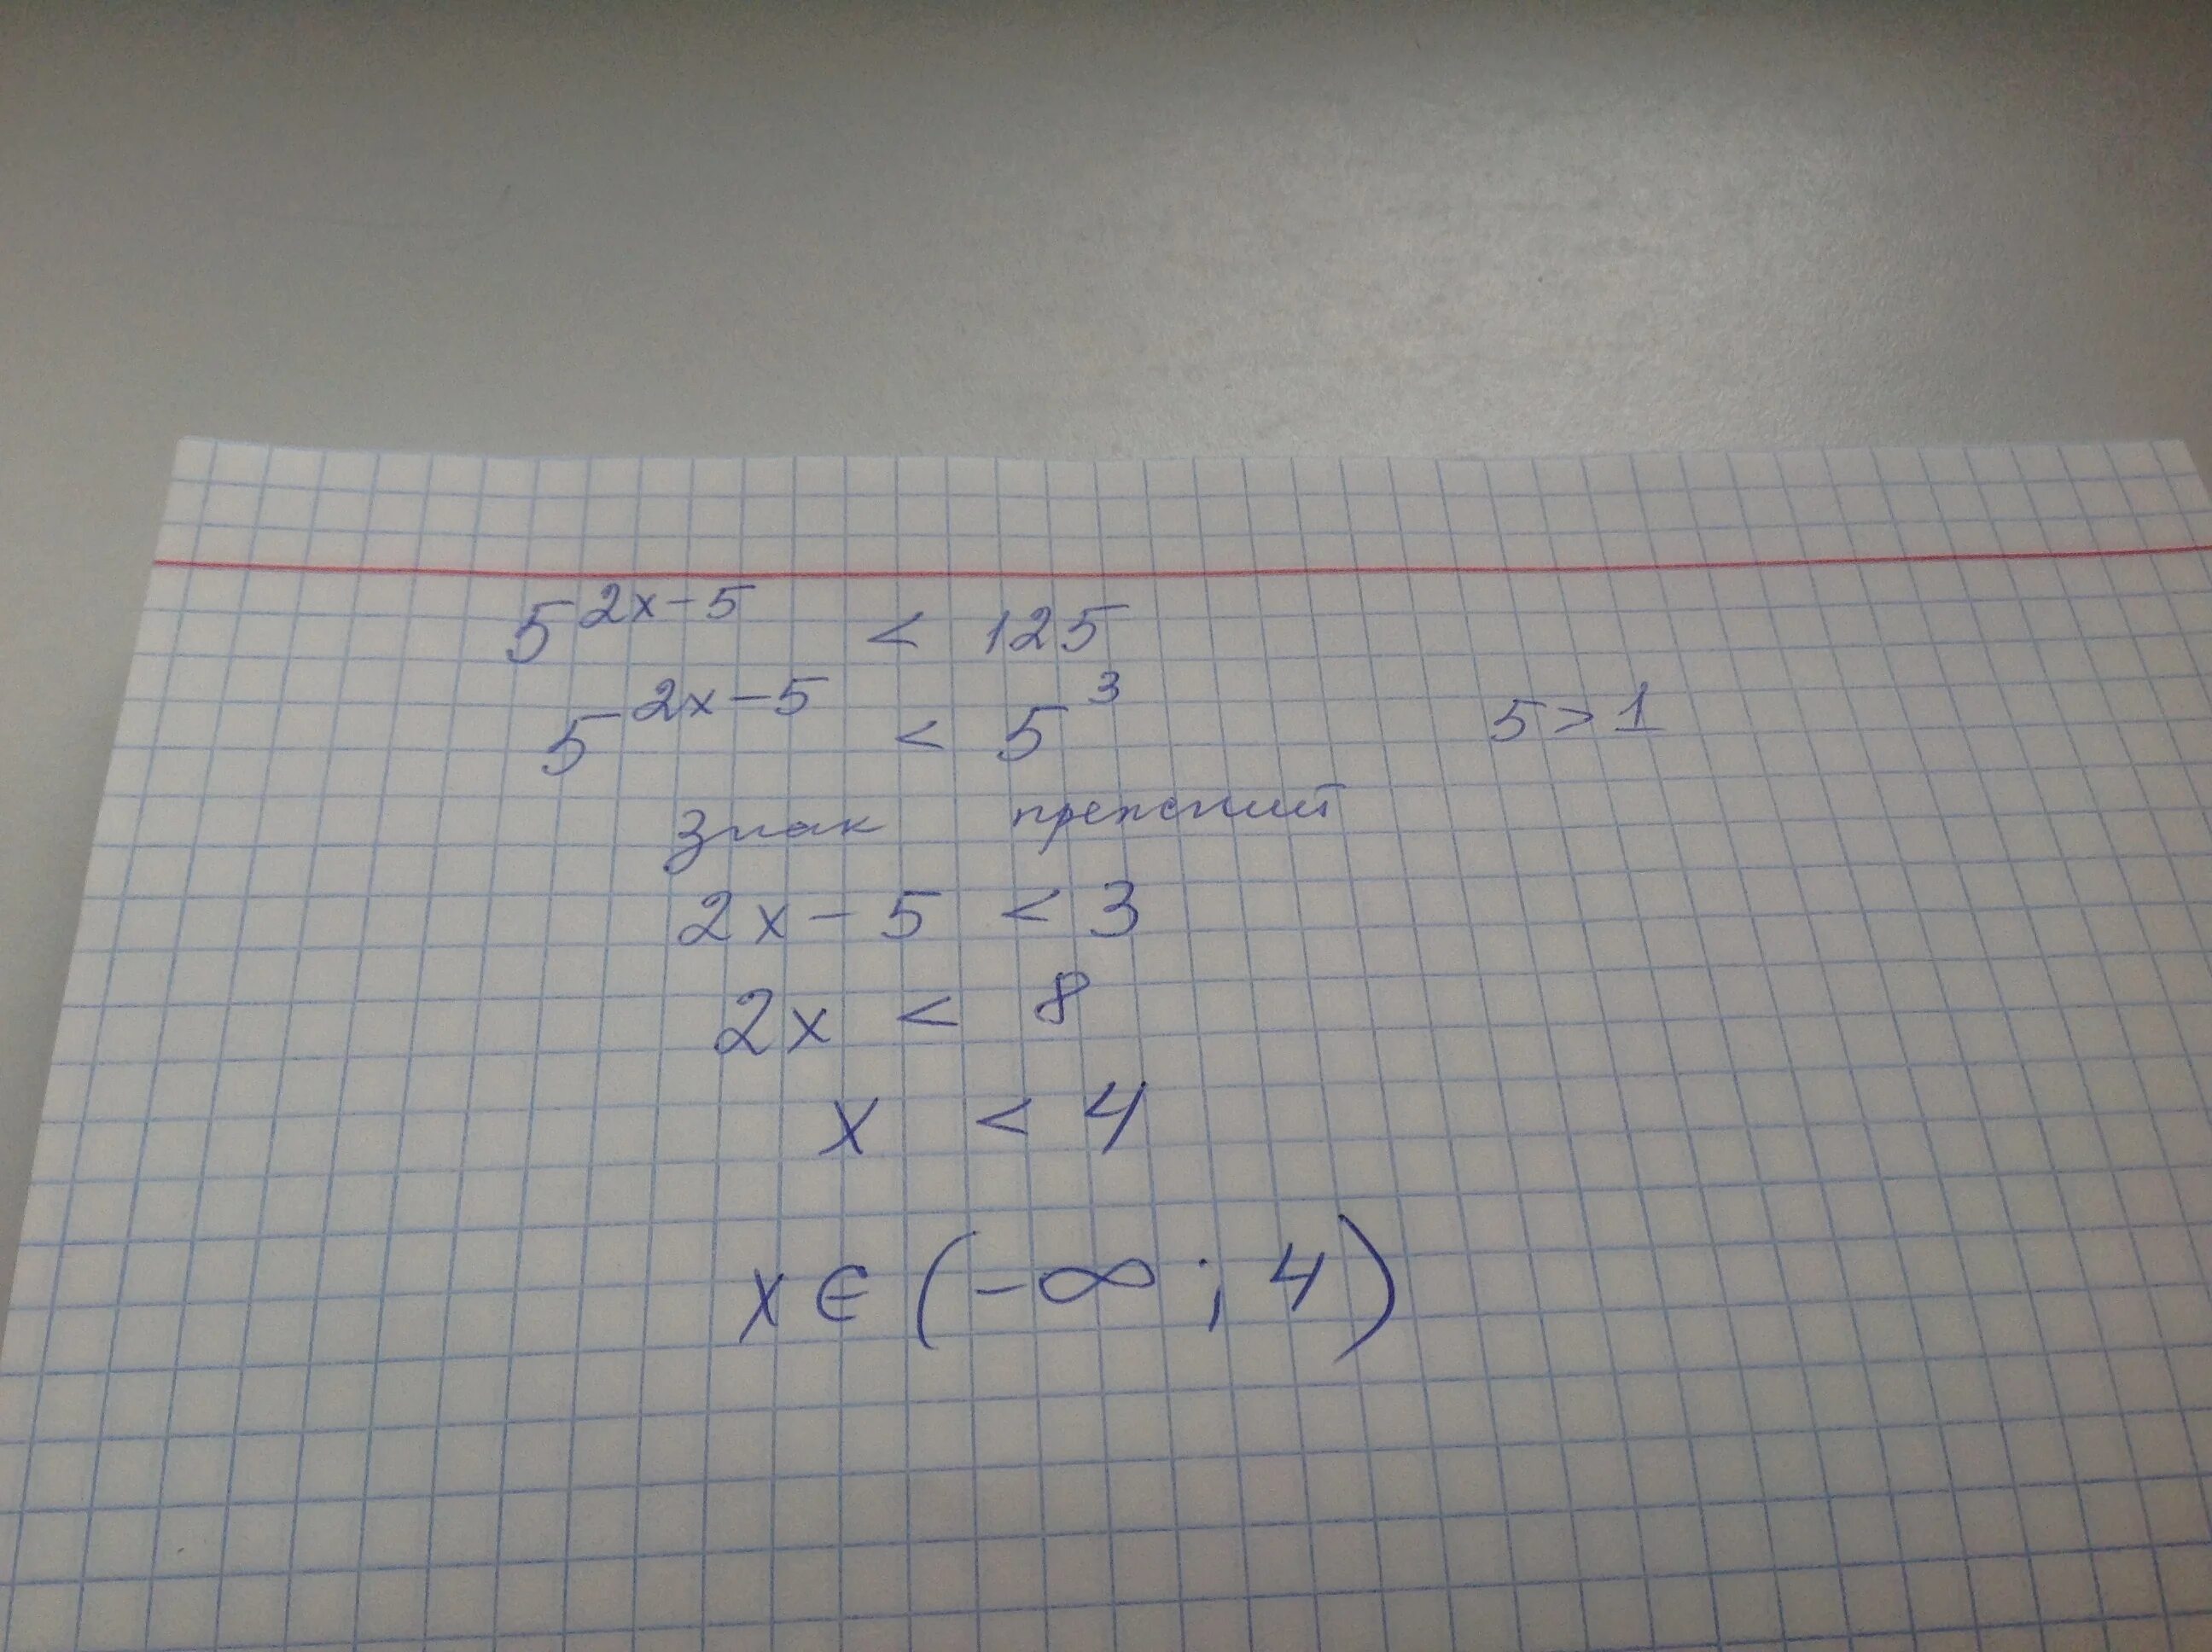 5^{2x-5} < 125
5^{2x-5} < 5^3 5>1
знак прежний
2x-5 < 3
2x < 8
x < 4
x ∈ (-∞ ; 4)